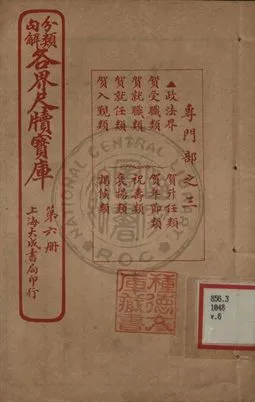 分類句解
各界尺牘寶庫
第六冊
上海大成書局印行
專門部之三
▲政法界
賀受職類 賀升任類
賀就職類 賀年節類
賀就任類 祝壽類
賀入覲類 褒揚類
謁候類
種德文庫藏書
NATIONAL CENTRAL
856.3
1048
v.6